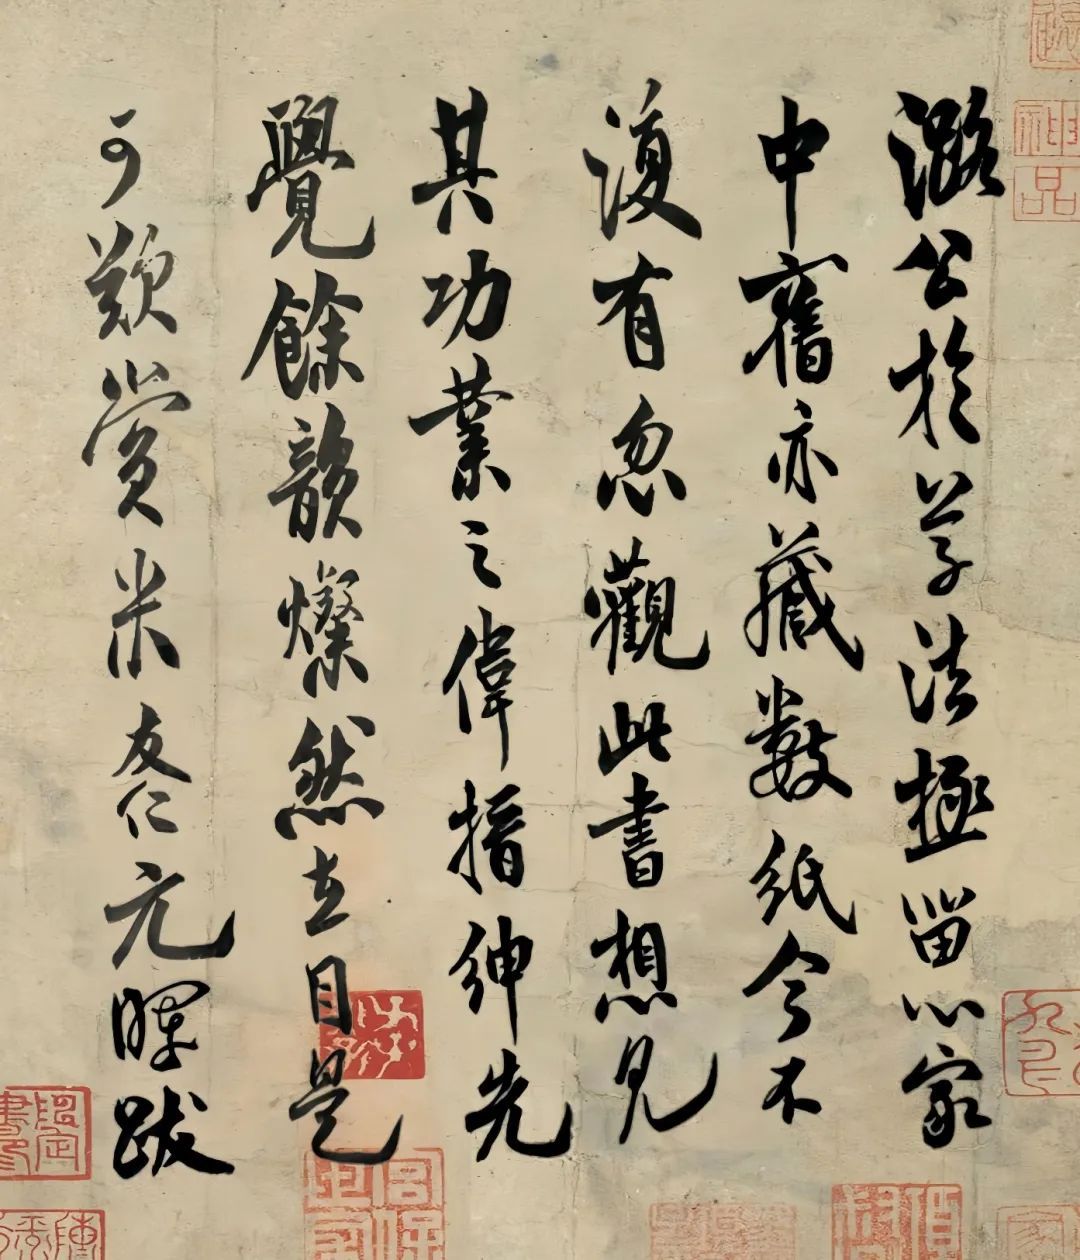 潞公於草法極留心家
中舊亦藏數紙今不
復有忽觀此書想見
其功業之偉搢紳先
覺餘韻燦然在目是
可歎賞米友仁元暉跋
神品